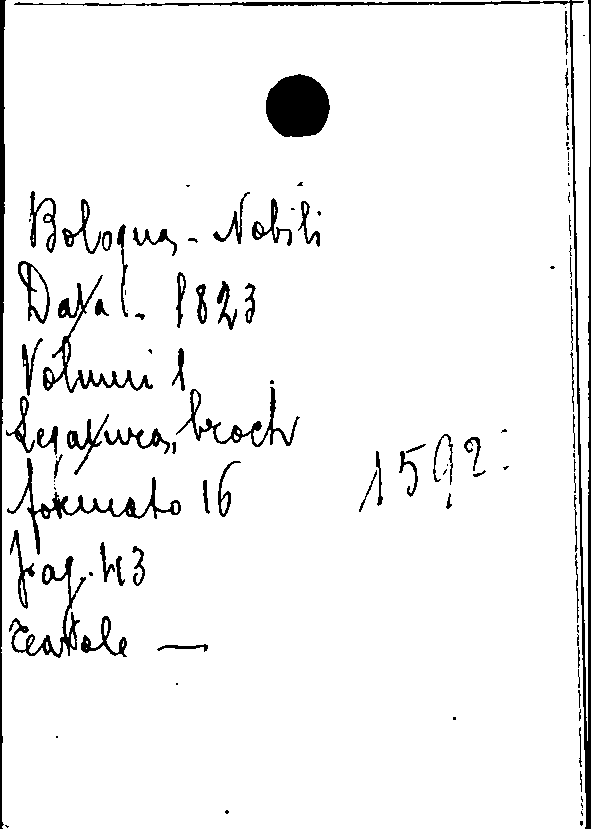 Bologna - Nobili
Data - 1823
Volumi 1
Legatura, broch
formato 16
pag. 43
Teatole —
1592